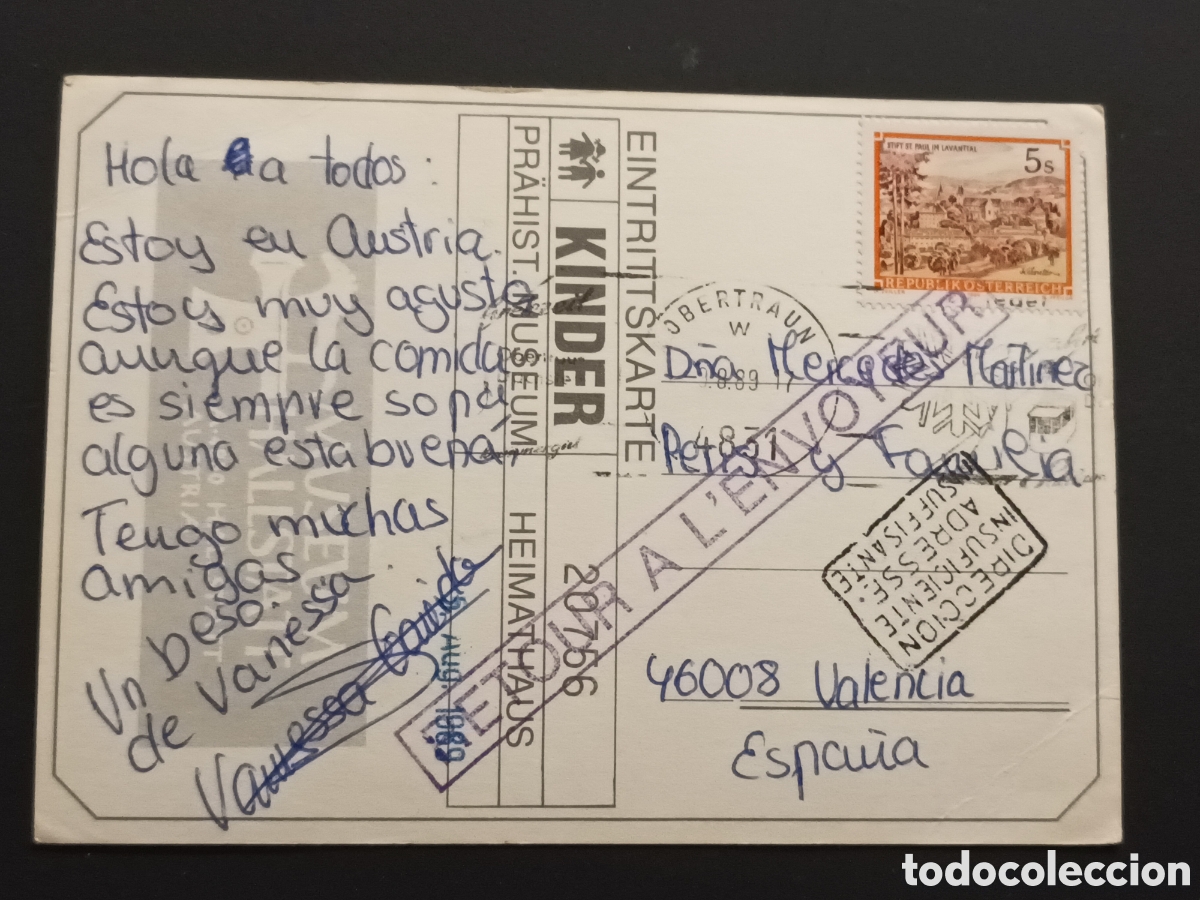 Hola a todos:
Estoy en Austria.
Estoy muy agusto
aunque la comida
es siempre sopa
alguna esta buena,
Tengo muchas
amigas.
Un beso.
de Vanessa
Vanessa
MUSEUM
HALLSTATT
AUSTRIA
15. Aug. 1989
PRÄHIST. MUSEUM HEIMATHAUS
KINDER
20756
EINTRITTSKARTE
STIFT ST. PAUL IM LAVANTTAL
5s
REPUBLIK ÖSTERREICH
OBERTRAUN
W
.8.89 17
4831
RETOUR A L'ENVOYEUR
Dña Mercedes Martinez
Petit y
46008 Valencia
España
DIRECCION
INSUFICIENTE
ADRESSE
INSUFFISANTE
todocoleccion